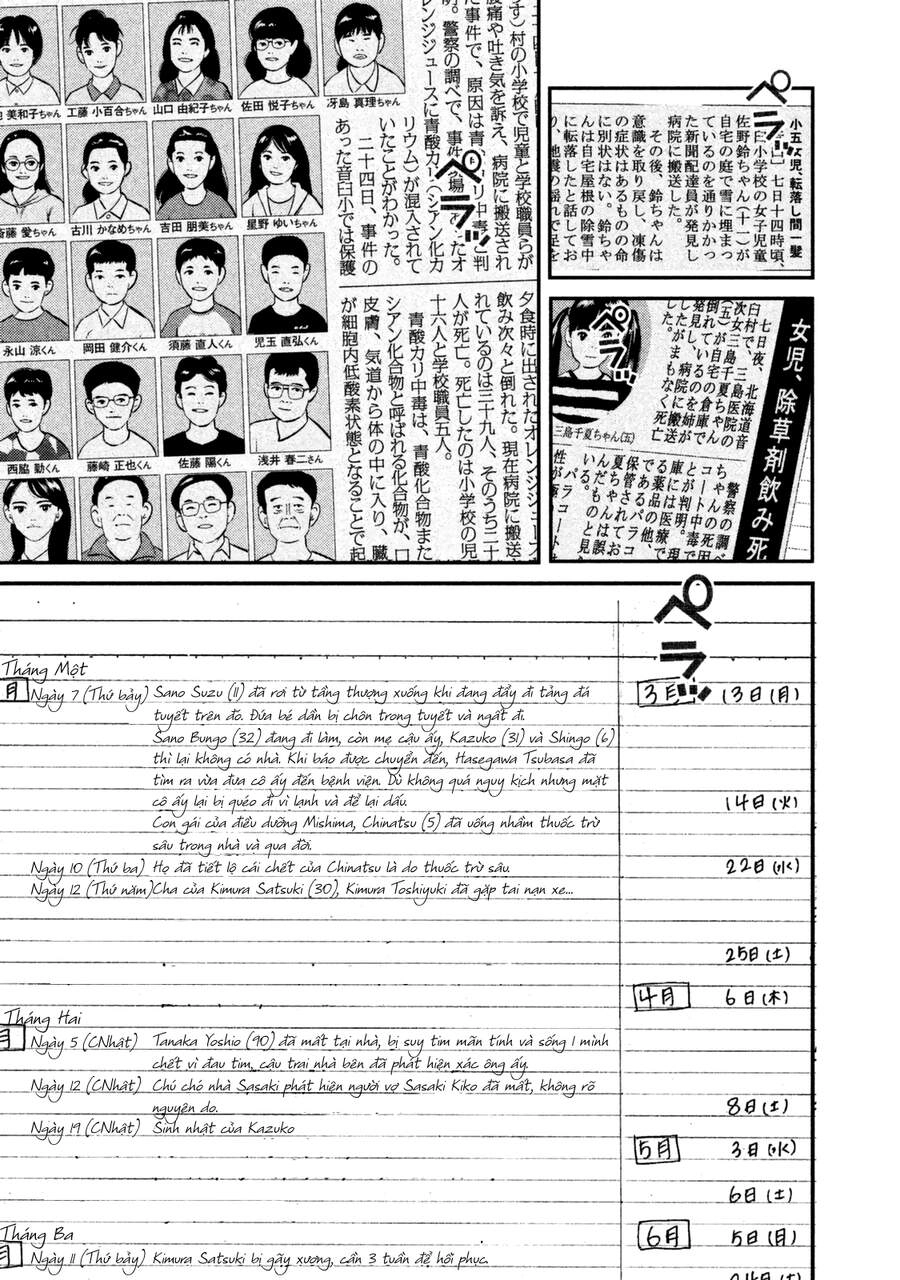 ペラッ
小五女児、転落し間一髪
七日十四時頃、
音臼小学校の女子児童
佐野鈴ちゃん(十一)が
自宅の庭で雪に埋まっ
ているのを通りかかっ
た新聞配達員が発見し
病院に搬送した。
その後、鈴ちゃんは
意識を取り戻し、凍傷
の症状はあるものの命
に別状はない。鈴ちゃ
んは自宅屋根の除雪中
に転落したと話してお
す)村の小学校で児童と学校職員らが
腹痛や吐き気を訴え、病院に搬送され
た事件で、原因は青
警察の調べで、事件
レンジジュースに青酸カリ(シアン化カ
リウム)が混入されて
いたことがわかった。
二十四日、事件の
あった音臼小では保護
美和子ちゃん
工藤 小百合ちゃん
山口 由紀子ちゃん
佐田 悦子ちゃん
冴島 真理ちゃん
斎藤 愛ちゃん
古川 かなめちゃん
吉田 朋美ちゃん
星野 ゆいちゃん
永山 涼くん
岡田 健介くん
須藤 直人くん
児玉 直弘くん
西脇 勤くん
藤崎 正也くん
佐藤 陽くん
浅井 春二さん
ペラッ
夕食時に出されたオレンジジュース
飲み次々と倒れた。現在病院に搬送
れているのは三十九人、そのうち二十
人が死亡。死亡したのは小学校の児
十六人と学校職員五人。
青酸カリ中毒は、青酸化合物また
シアン化合物と呼ばれる化合物が、口
皮膚、気道から体の中に入り、臓
が細胞内低酸素状態となることで起
女児、除草剤飲み死
七日夜、北海道音
臼村で、三島医院の
次女三島千夏ちゃん
(五)が自宅の倉庫で
倒れているのを姉が
発見し、病院に搬送
したがまもなく死亡
した。
三島千夏ちゃん(五)
警察の調べ
ちゃんの死因
コート中毒で
とが判明。現
庫には医療で
る薬品の他、
であるパラコ
保管されてお
夏ちゃんは誤
んだものと見
いる。
パラコート
性が極
ペラッ
ペラッ
Tháng Một
月
Ngày 7 (Thứ bảy) Sano Suzu (11) đã rơi từ tầng thượng xuống khi đang đẩy đi tảng đá
tuyết trên đó. Đứa bé dần bị chôn trong tuyết và ngất đi.
Sano Bungo (32) đang đi làm, còn mẹ cậu ấy, Kazuko (31) và Shingo (6)
thì lại không có nhà. Khi báo được chuyển đến, Hasegawa Tsubasa đã
tìm ra vừa đưa cô ấy đến bệnh viện. Dù không quá nguy kịch nhưng mặt
cô ấy lại bị quéo đi vì lạnh và để lại dấu.
Con gái của điều dưỡng Mishima, Chinatsu (5) đã uống nhầm thuốc trừ
sâu trong nhà và qua đời.
Ngày 10 (Thứ ba) Họ đã tiết lộ cái chết của Chinatsu là do thuốc trừ sâu.
Ngày 12 (Thứ năm) Cha của Kimura Satsuki (30), Kimura Toshiyuki đã gặp tai nạn xe...
Tháng Hai
月
Ngày 5 (CNhật) Tanaka Yoshio (90) đã mất tại nhà, bị suy tim mãn tính và sống 1 mình
chết vì đau tim, cậu trai nhà bên đã phát hiện xác ông ấy.
Ngày 12 (CNhật) Chú chó nhà Sasaki phát hiện người vợ Sasaki Kiko đã mất, không rõ
nguyên do.
Ngày 19 (CNhật) Sinh nhật của Kazuko
Tháng Ba
月
Ngày 11 (Thứ bảy) Kimura Satsuki bị gãy xương, cần 3 tuần để hồi phục.
3月 13日(月)
14日(火)
22日(水)
25日(土)
4月 6日(木)
8日(土)
5月 3日(水)
6日(土)
6月 5日(月)
24日(土)